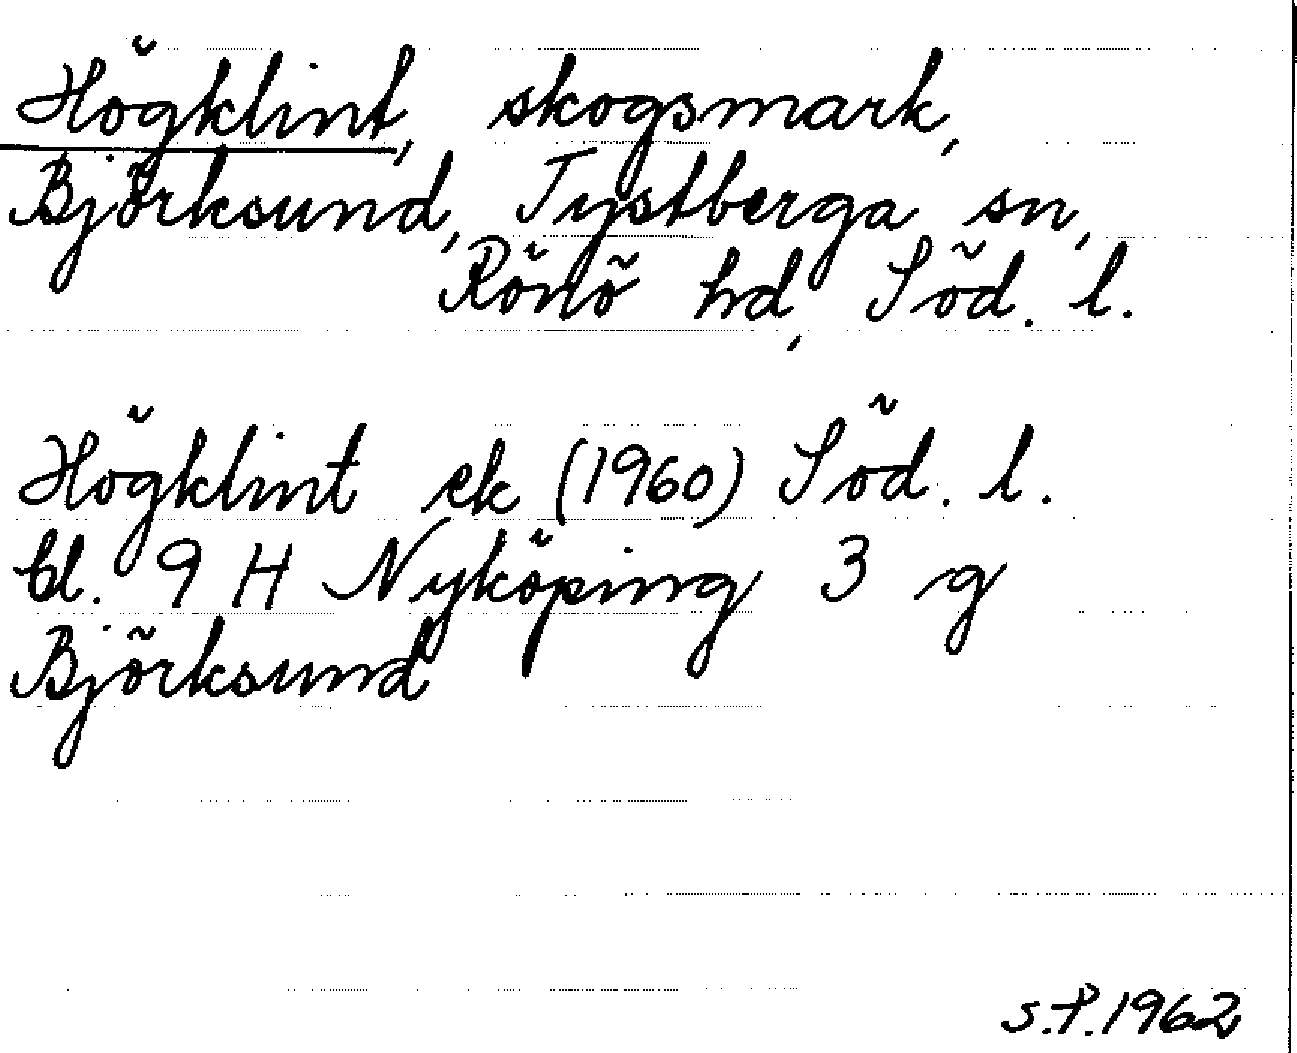 Högklint, skogsmark,
Björksund, Tystberga sn,
Rönö hd, Söd. l.
Högklint ek (1960) Söd. l.
bl. 9 H Nyköping 3 g
Björksund
S.P. 1962